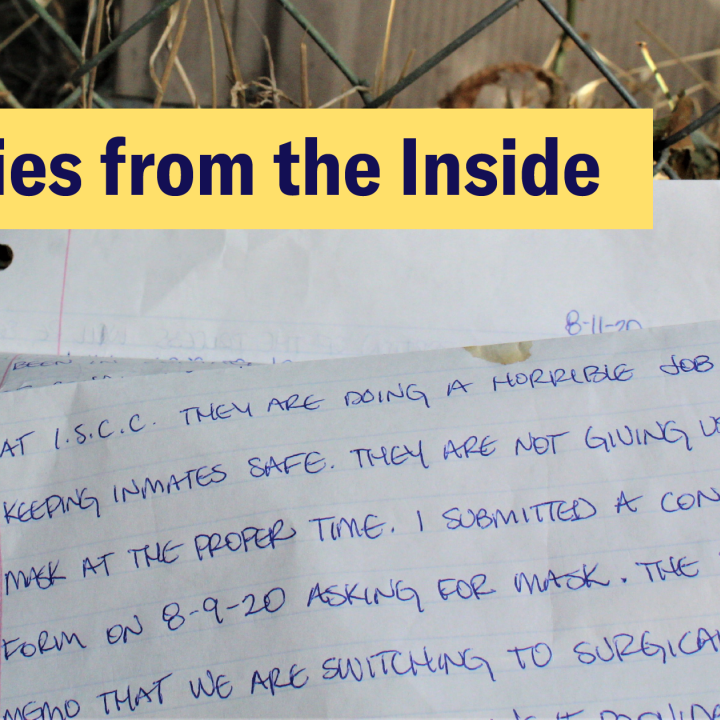 ies from the Inside
8-11-20
BEEN IN
AT I.S.C.C. THEY ARE DOING A HORRIBLE JOB
KEEPING INMATES SAFE. THEY ARE NOT GIVING US
MASK AT THE PROPER TIME. I SUBMITTED A CON
FORM ON 8-9-20 ASKING FOR MASK. THE
MEMO THAT WE ARE SWITCHING TO SURGICAL